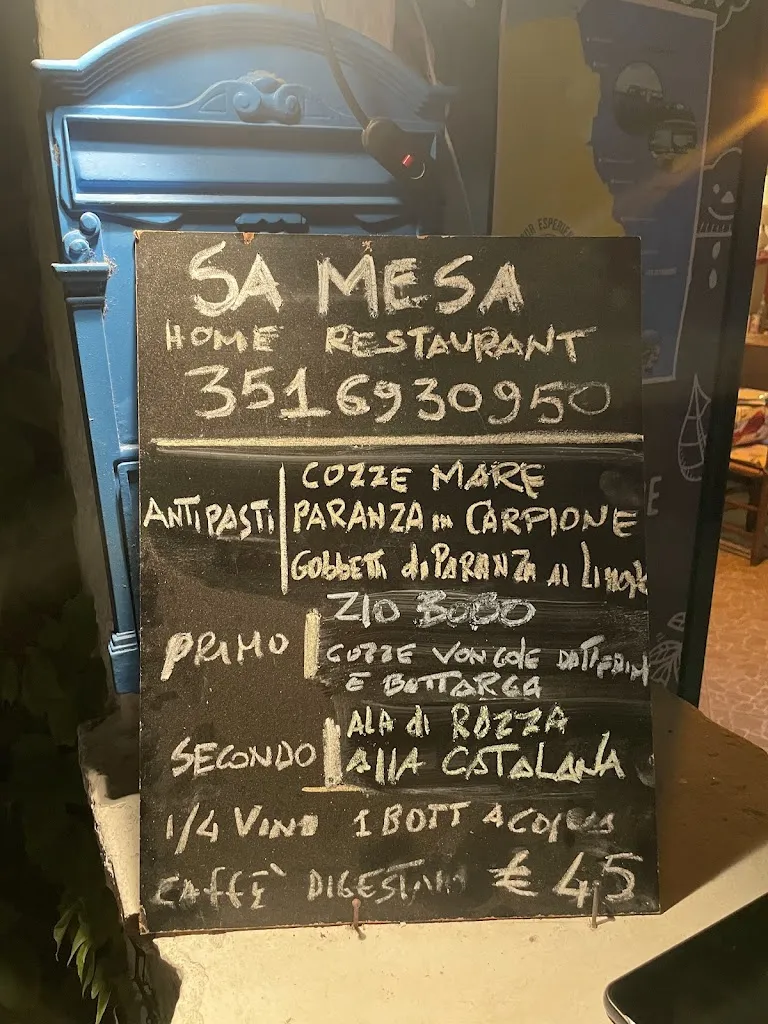 UR ESPERIE
SA MESA
HOME RESTAURANT
3516930950
ANTIPASTI
COZZE MARE
PARANZA in CARPIONE
GOBBETTI di PARANZA AL LIMONE
PRIMO
ZIO BOBO
COZZE VONGOLE DATTERINI
E BOTTARGA
SECONDO
ALA di RAZZA
AllA CATALANA
1/4 VINO 1 BOTT ACQUA
CAFFÈ DIGESTIVO € 45